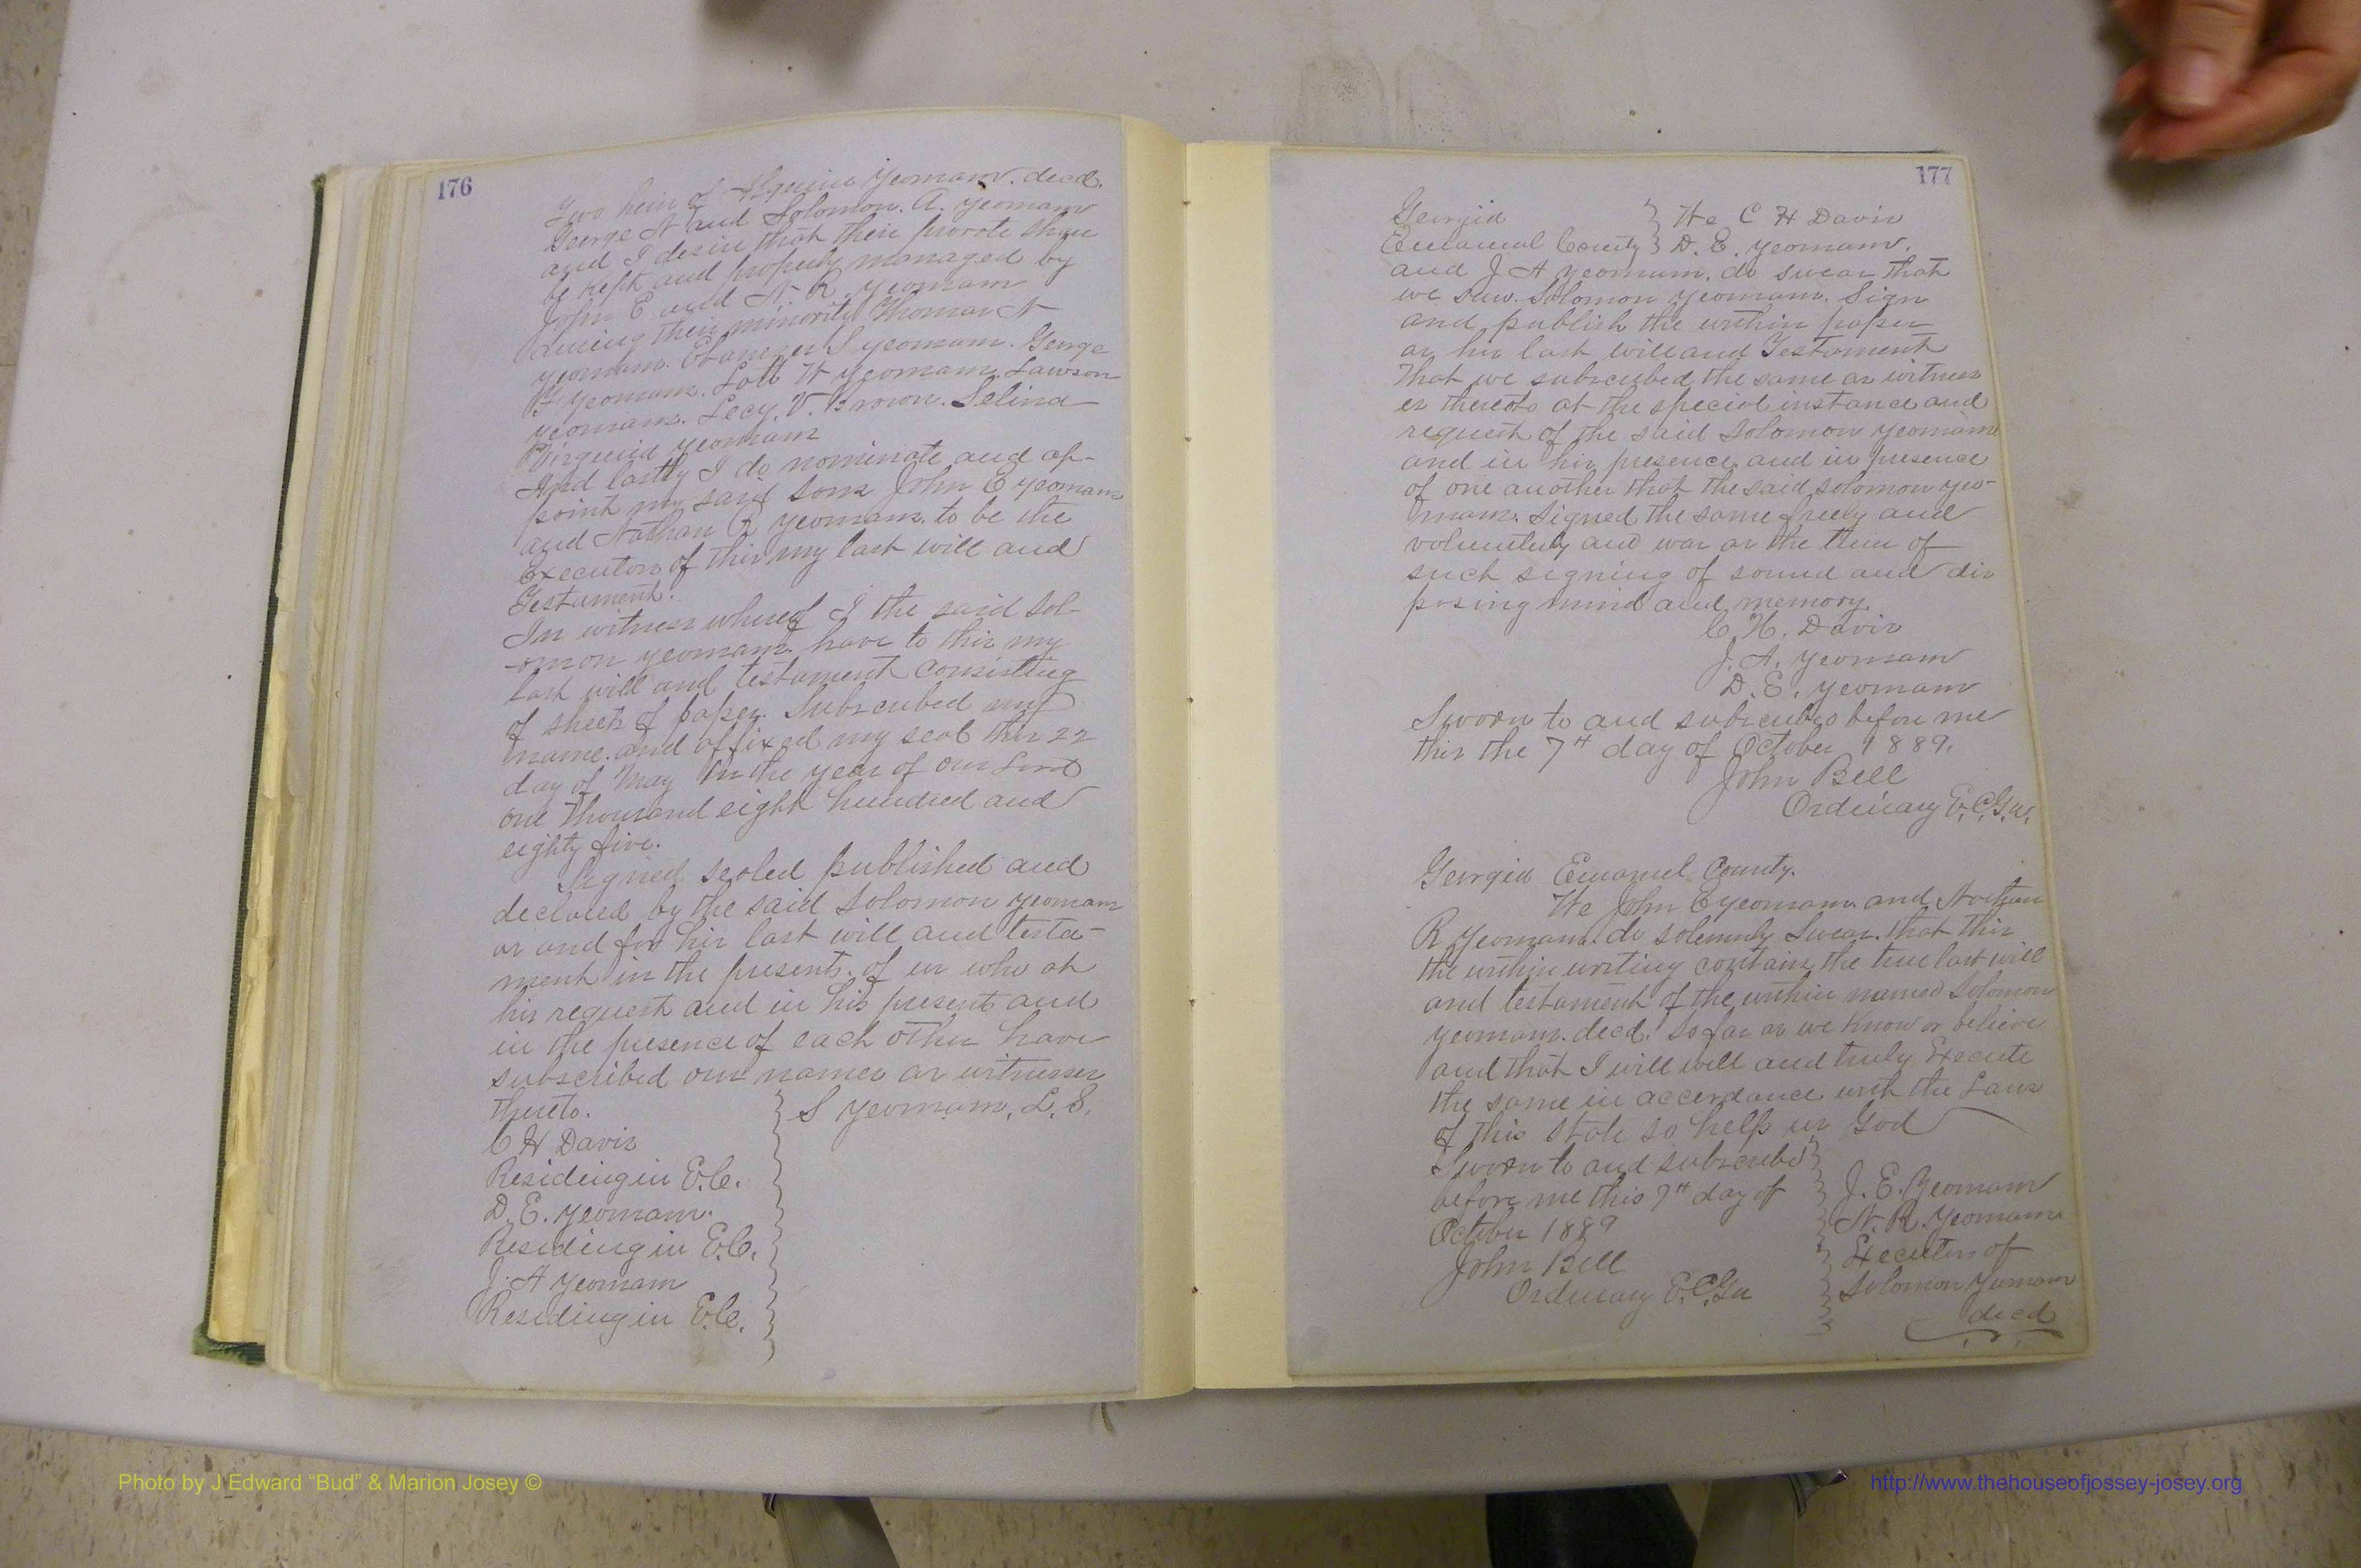 176
Two heirs of Yeomans. decd.
George N and Solomon. A. Yeomans
and I desire that their prorote shall
be kept and properly managed by
John E and N. R. Yeomans
during their minority Thomas N
Yeomans. Ebanezer S Yeomans. George
F Yeomans. Lott W Yeomans. Lawson
Yeomans. Lecy. V. Brown. Selina
Virginia Yeomans
And lastly I do nominate and ap-
point my said sons John E Yeomans
and Nathan R Yeomans. to be the
Executors of this my last will and
Testament.
In witness whereof I the said Sol-
-omon Yeomans. have to this my
last will and testament consisting
of sheets of paper. Subscribed my
name. and affixed my seal this 22
day of May In the year of our Lord
one thousand eight hundred and
eighty five.
Signed sealed published and
declared by the said Solomon Yeomans
as and for his last will and testa-
ment in the presents. of us who at
his request and in his presents and
in the presence of each other have
subscribed our names as witnesses
thereto. S Yeomans, L. S.
C H Davis
Residing in E.C.
D. E. Yeomans.
Residing in E.C.
J. A Yeomans
Residing in E.C.
177
Georgia } We C H Davis
Emanuel County } D. E. Yeomans.
and J A Yeomans. do swear that
we saw. Solomon Yeomans. Sign
and publish the within paper
as his last will and Testament
That we subscribed the same as witness
es thereto at the special instance and
request of the said Solomon Yeomans
and in his presence and in presence
of one another that the said Solomon Yeo-
mans. Signed the same freely and
voluntuly and was at the time of
such signing of sound and dis
posing mind and memory.
C. H. Davis
J. A. Yeomans
D. E. Yeomans
Sworn to and subscribed before me
this the 7th day of October 1889.
John Bell
Ordinary E. C. Ga.
Georgia Emanuel County.
We John E Yeomans and Nathan
R Yeomans. do solemnly Swear. that this
the within writing contains the true last will
and testament of the within named Solomon
Yeomans. decd. So far as we Know or believe
and that I will well and truly Execute
the same in accordance with the Laws
of this state so help us God
Sworn to and subscribed
before me this 7th day of
October 1889
John Bell
Ordinary E. C. Ga
J. E. Yeomans
N. R. Yeomans
Executors of
Solomon Yeomans
decd
Photo by J Edward “Bud” & Marion Josey ©
http://www.thehouseofjossey-josey.org